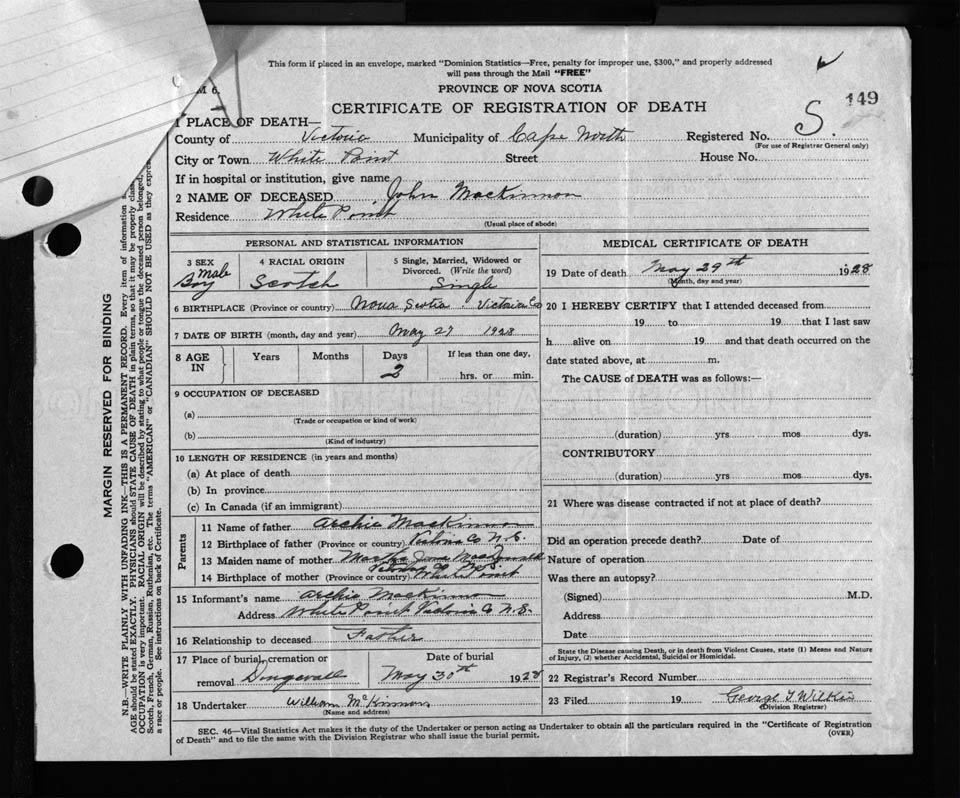 This form if placed in an envelope, marked "Dominion Statistics—Free, penalty for improper use, $300," and properly addressed
will pass through the Mail "FREE"
PROVINCE OF NOVA SCOTIA
CERTIFICATE OF REGISTRATION OF DEATH
S. 149
1 PLACE OF DEATH—
County of Victoria Municipality of Cape North Registered No.
(For use of Registrar General only)
City or Town White Point Street House No.
If in hospital or institution, give name
2 NAME OF DECEASED John MacKinnon
Residence White Point
(Usual place of abode)
PERSONAL AND STATISTICAL INFORMATION
3 SEX 4 RACIAL ORIGIN 5 Single, Married, Widowed or
Divorced. (Write the word)
Male
Boy Scotch Single
6 BIRTHPLACE (Province or country) Nova Scotia. Victoria Co
7 DATE OF BIRTH (month, day and year) May 27 1928
8 AGE IN Years Months Days If less than one day,
2 hrs. or min.
9 OCCUPATION OF DECEASED
(a)
(Trade or occupation or kind of work)
(b)
(Kind of industry)
10 LENGTH OF RESIDENCE (in years and months)
(a) At place of death
(b) In province
(c) In Canada (if an immigrant)
Parents
11 Name of father Archie MacKinnon
12 Birthplace of father (Province or country) Victoria Co N.S.
13 Maiden name of mother Martha Jane
14 Birthplace of mother (Province or country) White Point
15 Informant's name Archie MacKinnon
Address White Point Victoria Co N.S.
16 Relationship to deceased Father
17 Place of burial, cremation or Date of burial
removal May 30th 1928
18 Undertaker William McKinnon
(Name and address)
MEDICAL CERTIFICATE OF DEATH
19 Date of death May 29th 1928
(Month, day and year)
20 I HEREBY CERTIFY that I attended deceased from
19 to 19 that I last saw
h alive on 19 and that death occurred on the
date stated above, at m.
The CAUSE of DEATH was as follows:—
(duration) yrs mos dys.
CONTRIBUTORY
(duration) yrs mos dys.
21 Where was disease contracted if not at place of death?
Did an operation precede death? Date of
Nature of operation
Was there an autopsy?
(Signed) M.D.
Address
Date
State the Disease causing Death, or in death from Violent Causes, state (1) Means and Nature
of Injury, (2) whether Accidental, Suicidal or Homicidal.
22 Registrar's Record Number
23 Filed 19 George T Wilkie
(Division Registrar)
SEC. 46—Vital Statistics Act makes it the duty of the Undertaker or person acting as Undertaker to obtain all the particulars required in the "Certificate of Registration
of Death" and to file the same with the Division Registrar who shall issue the burial permit.
(OVER)
MARGIN RESERVED FOR BINDING
N.B.—WRITE PLAINLY WITH UNFADING INK—THIS IS A PERMANENT RECORD. Every item of information
AGE should be stated EXACTLY. PHYSICIANS should STATE CAUSE OF DEATH in plain terms, so that it may be properly
OCCUPATION is very important. RACIAL ORIGIN will be described by stating to what people or tongue the deceased person belonged,
Scotch, French, German, Russian, Ruthenian, etc. The terms "AMERICAN" or "CANADIAN" SHOULD NOT BE USED as they
a race or people. See instructions on back of Certificate.